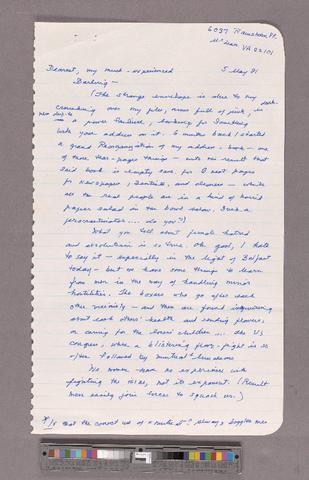 6037 Ramshorn Pl.
McLean VA 22101
Dearest, my much-experienced 5 May 81
Darling —
(The strange envelope is due to my
crouching over my files, arms full of junk, in dark-
ness due to
a power failure, looking for something
with your address on it. 6 months back I started
a grand Reorganization of my address-book — one
of those tear-pages things — with the result that
said book is empty save for 3 neat pages
for Newspaper, Dentists, and cleaners — while
all the real people are in a kind of horrid
paper salad in the bowl below. Such a
procrastinator.... do you?)
What you tell about female hatred
and absolutism is so true. Oh god, I hate
to say it — especially in the light of Belfast
today — but we have some things to learn
from men in the way of handling minor
hostilities. The boxers who go after each
other viciously — and then are found inquiring
about each others' health and sending flowers,
or caring for the loser's children... the US
Congress, where a blistering floor-fight is so
often followed by mutual*
We women have no experience with
fighting the rules, not its exponent. (Result
men easily join forces to squash us.)
*/Is that the correct use of "mutual"? Always boggles me